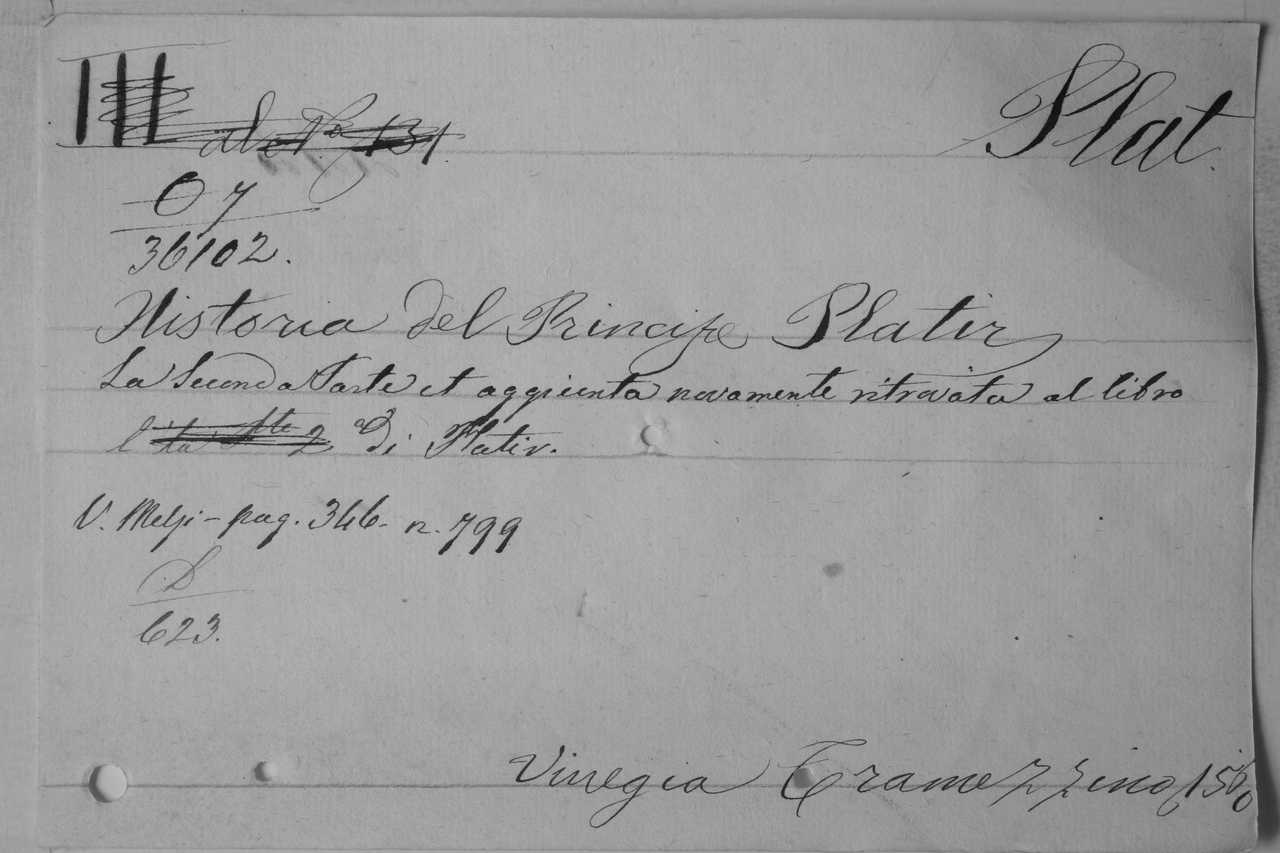 III
Plat.
O 7
36102.
Historia del Principe Platir
La Seconda Parte et aggiunta novamente ritrovata al libro
di Platir.
V. Melzi - pag. 346. n. 799
D
623.
Vinegia Tramezzino 1560